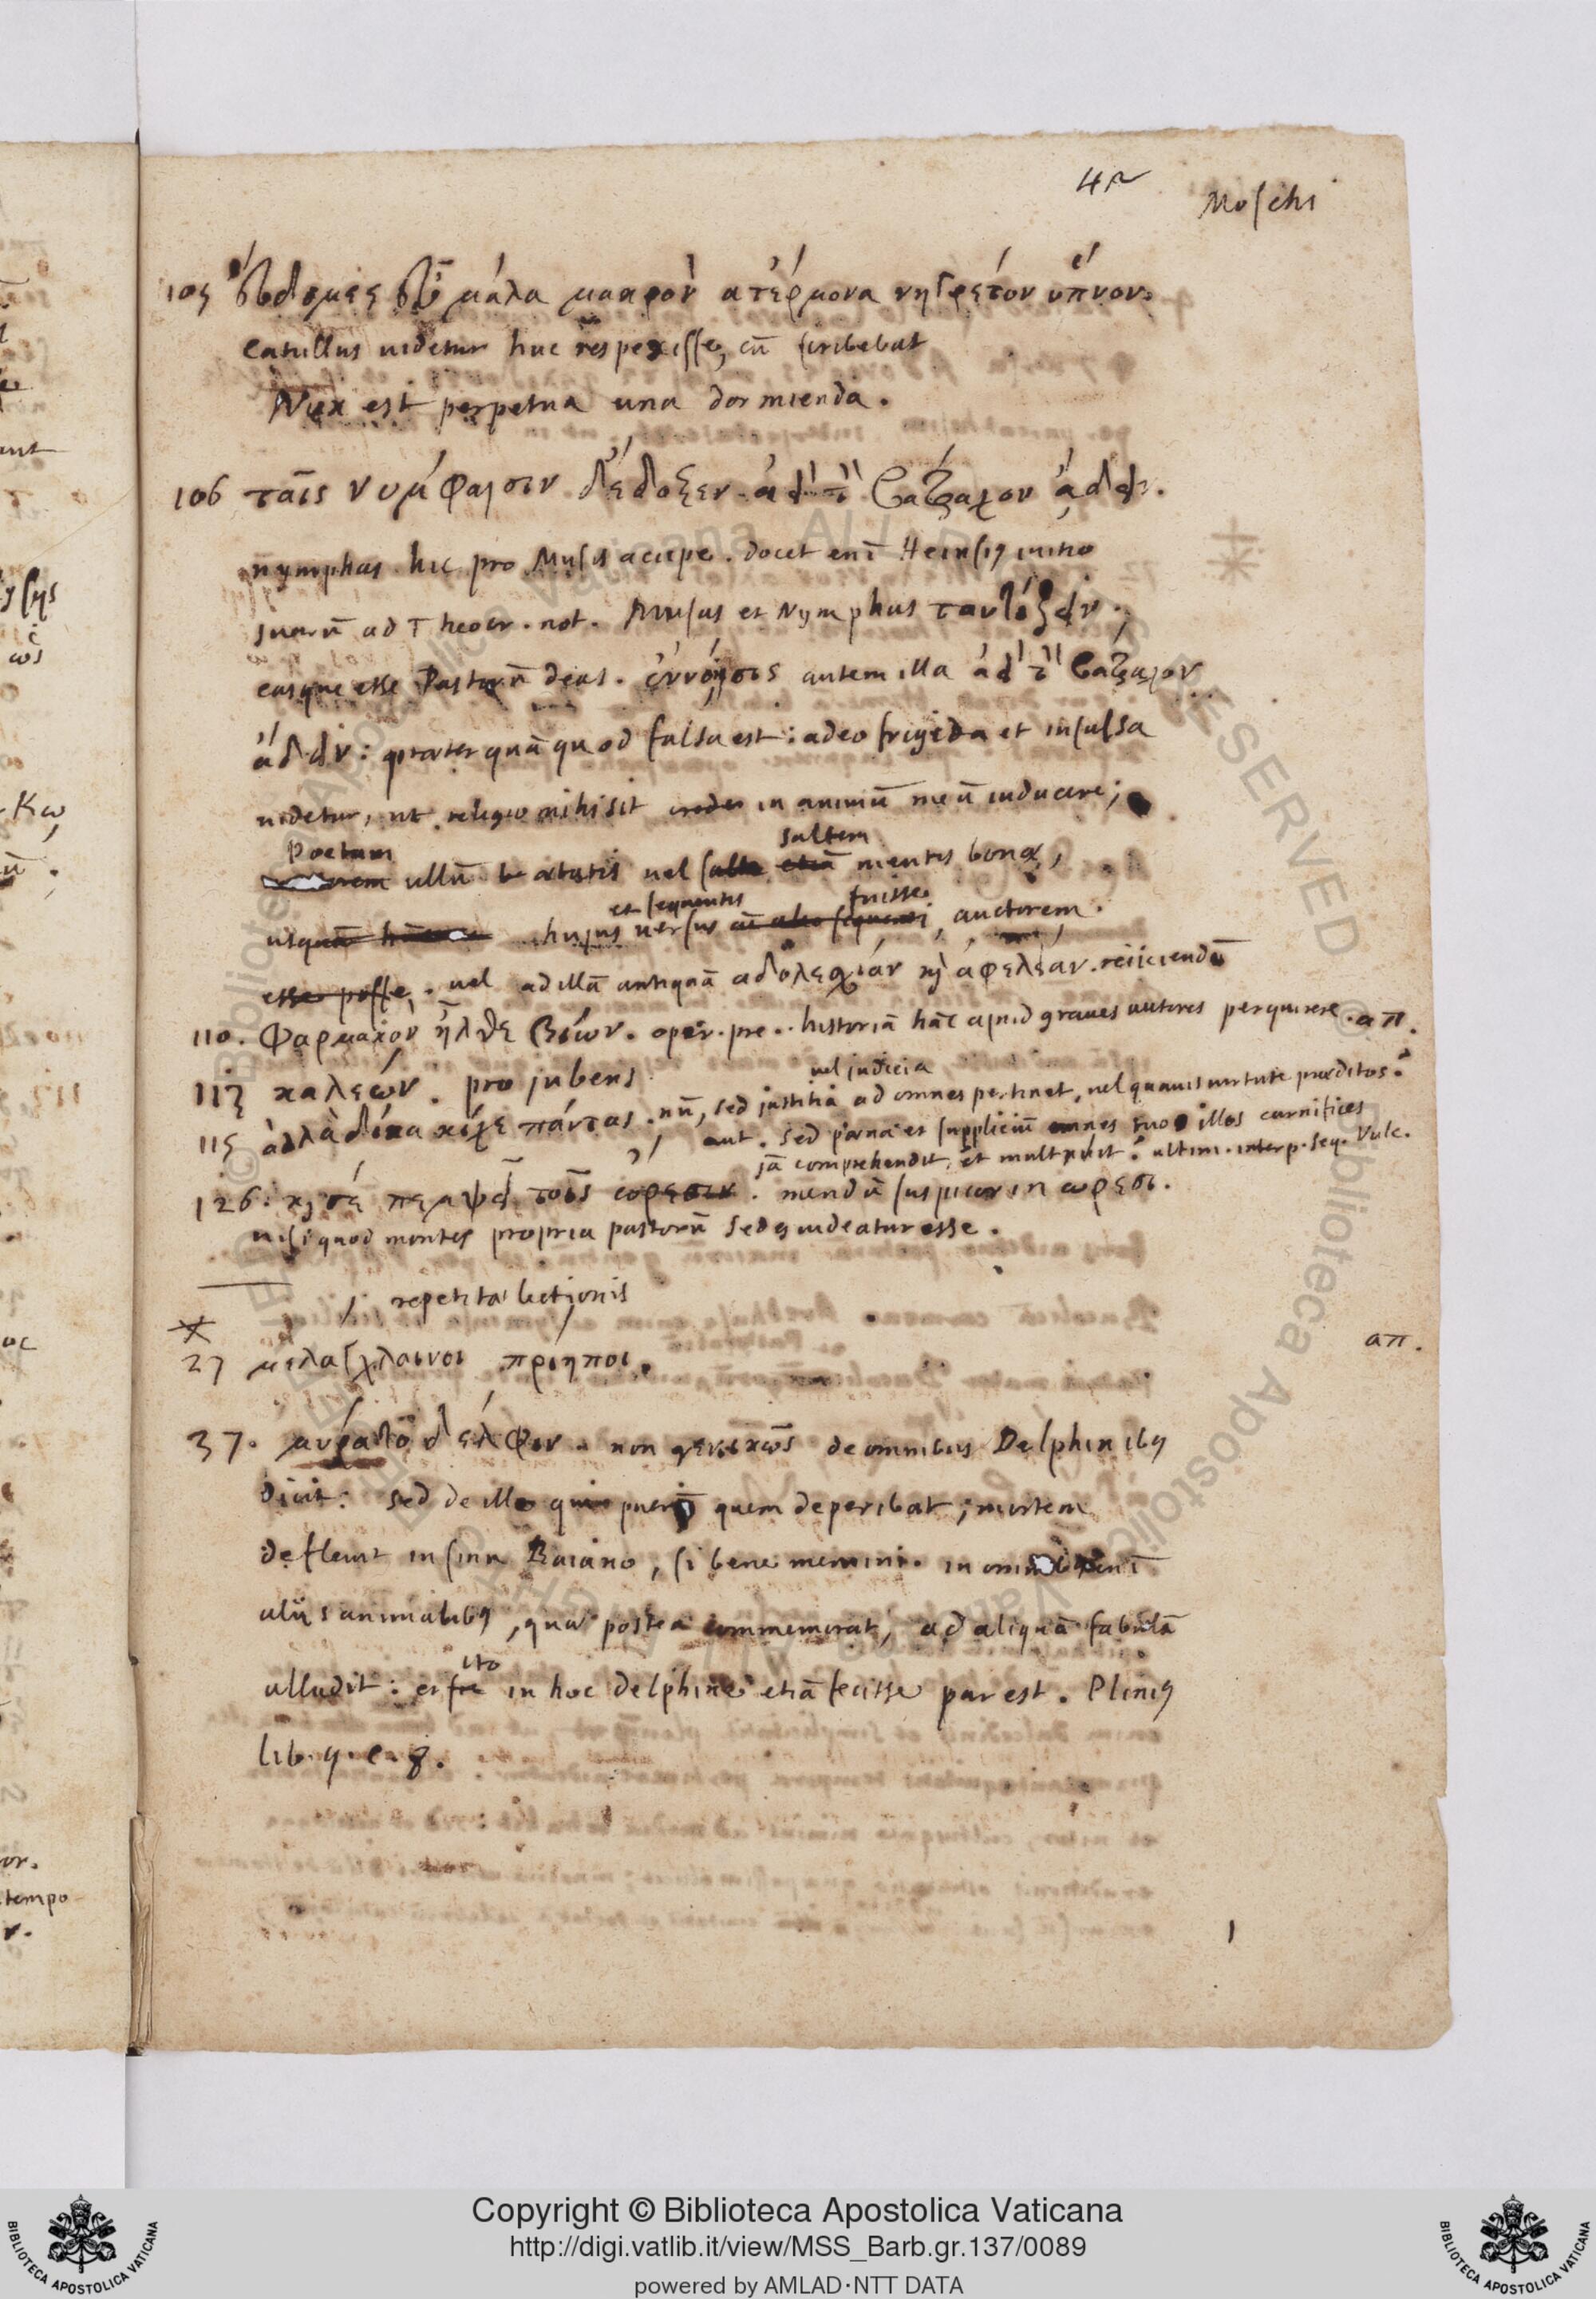 42 Moschi
105 εὕδομες εὖ μάλα μακρὸν ἀτέρμονα νήγρετον ὕπνον.
Catullus videtur huc respexisse, cū scribebat
Nox est perpetua una dormienda.
106 ταῖς νύμφαισιν δ' ἔδοξεν ἀεὶ τὸν βάτραχον ᾄδειν.
nymphas hic pro Musis accipe. docet enī Heinsius initio
suarū ad Theocr. not. Musas et Nymphas ταυτίζειν;
easque esse Pastorū deas. ἐννόησις autem illa ἀεὶ τὸν βάτραχον
ᾄδειν: praeter quā quod falsa est: adeo frigida et insulsa
videtur, ut religio mihi sit in animū meū inducere;
Poetam
saltem
ullū aetatis vel mentis bonae,
et sequentis fuisse
hujus versus auctorem.
esse posse. vel ad illā antiquā ἀδολεσχίαν κỳ ἀφέλειαν reiiciendū
110. Φάρμακον ἦλθε Βίων. oper. pre.. historiā hāc apud graves autores perquirere. απ.
113 καλέων. pro jubens
vel judicia
115 ἀλλὰ δίκα κίχε πάντας. nū, sed justitia ad omnes pertinet, vel quamvis virtute praeditos?
aut. sed poena et suppliciū suos illos carnifices
jā comprehendit, et multavit? ultim. interp. seq. Vulc.
126. κỳ σὲ πέμψει τοῖς ὤρεσιν. mendū suspicor in ωρεσι.
nisi quod montes propria pastorū sedes videatur esse.
repetita lectionis
27 μελάγχλαινοι πρίηποι. απ.
37. δελφιν. non γενικῶς de omnibus Delphinibus
dicit: sed de illo qui puerū quem deperibat; mortem
deflevit in sinu Baiano, si bene memini. in omnibus enī
aliis animalibus, quae postea commemorat, ad aliquā fabulā
ita
alludit: et in hoc delphine etiā fecisse par est. Plinius
lib. 9. c. 8.
1
Copyright © Biblioteca Apostolica Vaticana
http://digi.vatlib.it/view/MSS_Barb.gr.137/0089
powered by AMLAD·NTT DATA
BIBLIOTECA APOSTOLICA VATICANA
BIBLIOTECA APOSTOLICA VATICANA